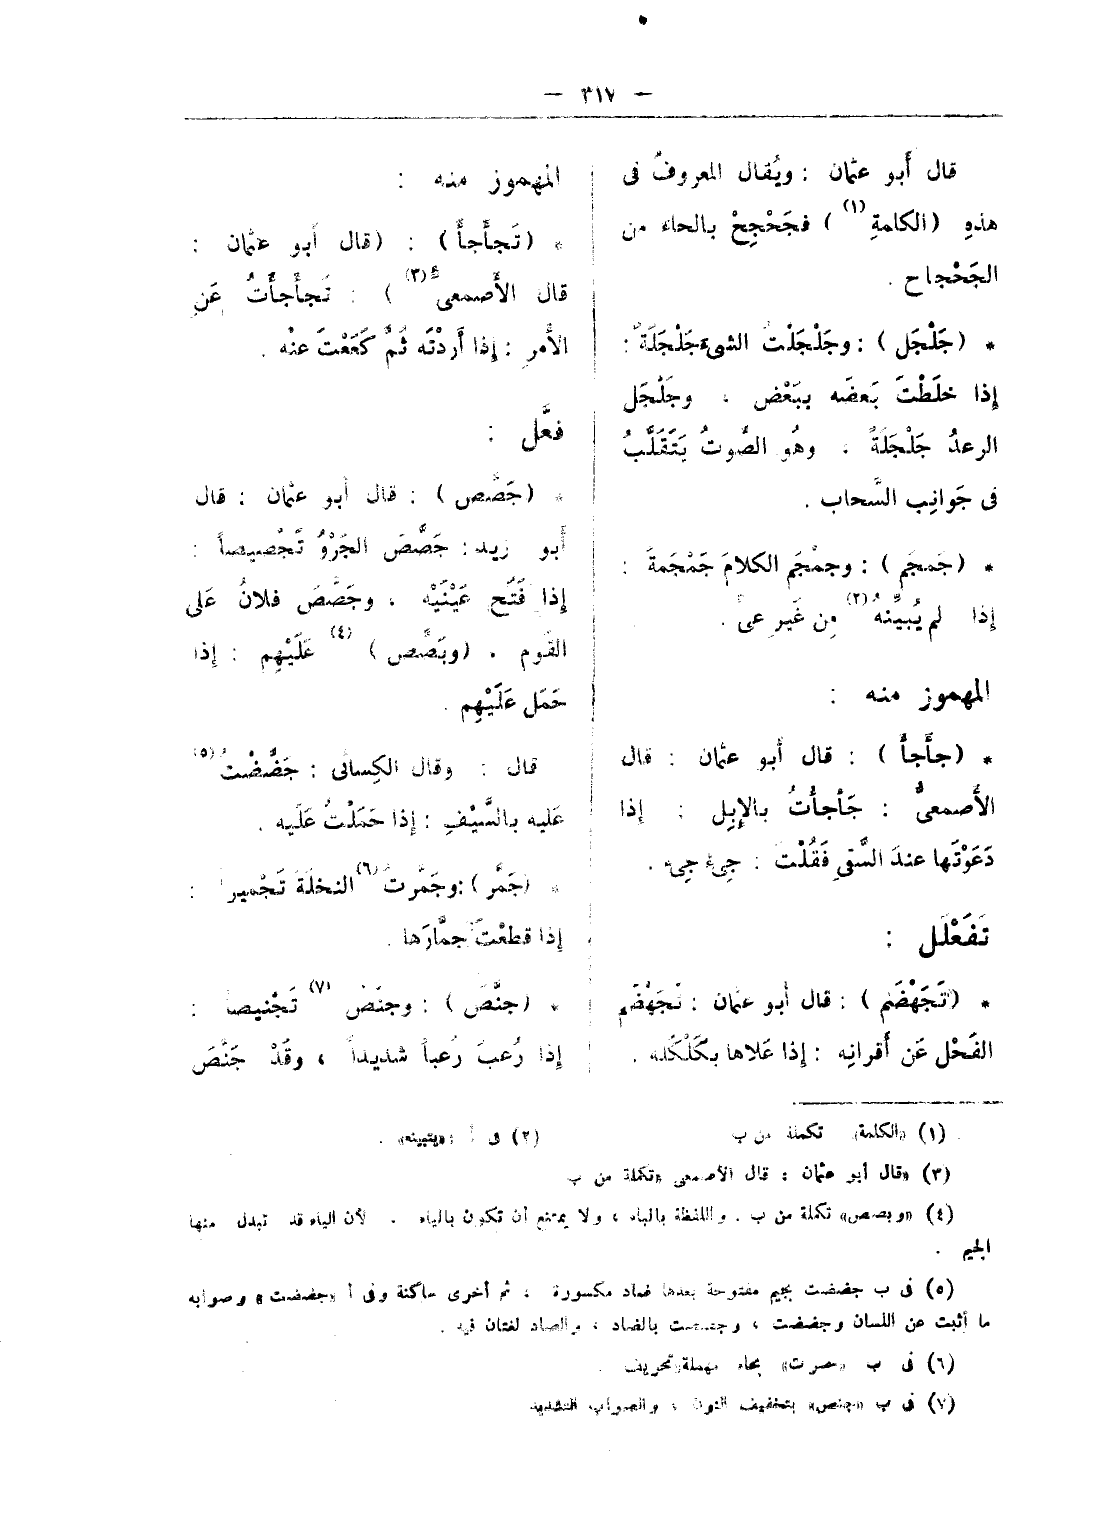 — ٣١٧ —
قال أَبو عثمان : ويُقال المعروفُ فى
هذهِ (الكلمةِ (١) ) فجَحْجِحْ بالحاء من
الجَحْجاح .
* (جَلْجَل ) : وجَلْجَلْتُ الشىءَ جَلْجَلَةً :
إِذا خلَطْتَ بَعضَه ببَعْض ، وجَلْجَل
الرعدُ جَلْجَلَةً ، وهُو الصَّوتُ يَتَقَلَّبُ
فى جَوانِب السَّحاب .
* (جَمجَم ) : وجمْجَم الكلامَ جَمْجَمةً :
إِذا لم يُبيِّنهُ (٢) مِن غَيرِ عىٍّ .
المهموز منه :
* (جأجأ ) : قال أَبو عثمان : قال
الأَصمعىُّ : جَأجأْتُ بالإِبِل : إِذا
دَعَوْتَها عندَ السَّقىِ فَقُلْتَ : جِىءْ جِىءْ .
تَفَعْلَل :
* (تَجَهْضَم ) : قال أَبو عثمان : تَجَهْضَم
الفَحْل عَن أَقرانِه : إِذا عَلاها بكَلْكَلَه .
المهموز منه :
* (تَجأجأَ ) : (قال أَبو عثمان :
قال الأَصمعىُّ (٣) ) : تَجأجأْتُ عَنِ
الأَمرِ : إِذا أَردْتَه ثُمَّ كَعَعْتَ عنْه .
فعَّل :
* (جَصَّص ) : قال أَبو عثمان : قال
أَبو زيد : جَصَّصَ الجَرْوُ تَجْصيصاً :
إِذا فَتَح عَيْنَيْه ، وجَصَّصَ فلانٌ عَلى
القَوم . (وبَصَّص ) (٤) عَلَيْهِم : إِذا
حَمَل عَلَيْهِم .
قال : وقال الكِسائى : جَضَّضْتُ (٥)
عَليه بالسَّيْفِ : إِذا حَمَلْتُ عَلَيه .
* (جَمَّر ) : وجَمَّرتُ (٦) النخلَةَ تَجْميراً :
إِذا قطعْتَ جمَّارَها .
* (جنَّصَ ) : وجنَّصَ (٧) تَجْنيصاً :
إِذا رُعبَ رُعباً شديداً ، وقَدْ جَنَّصَ
(١) «الكلمة» تكملة من ب
(٢) فى أ : «يتبينه» .
(٣) «قال أبو عثمان : قال الأصمعى «تكملة من ب
(٤) «وبصص» تكملة من ب . واللفظة بالباء ، ولا يمتنع أن تكون بالياء . لأن الياء قد تبدل منها
الجيم .
(٥) فى ب جضضت بجيم مفتوحة بعدها ضاد مكسورة ، ثم أخرى ساكنة وفى أ «جضضت» وصوابه
ما أثبت عن اللسان وجضضت ، وجصصت بالضاد ، والصاد لغتان فيه .
(٦) فى ب «حمرت» بحاء مهملة تحريف .
(٧) فى ب «جنص» بتخفيف النون ، والصواب التشديد